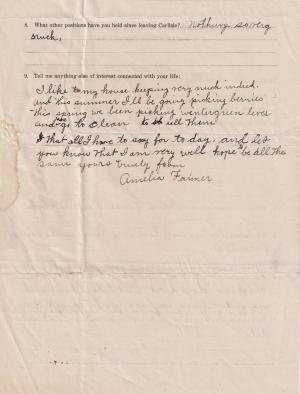 8. What other positions have you held since leaving Carlisle? Nothing
9. Tell me anything else of interest connected with your life:
I like to my house keeping very much indeed.
and this summer I'll be going picking berries
this spring we been picking wintergreen leves
and go to clean to sell them
that all I have to say for to day, and let
you know that I am very well hope be all the
same yours truely from
Amelia Farmer